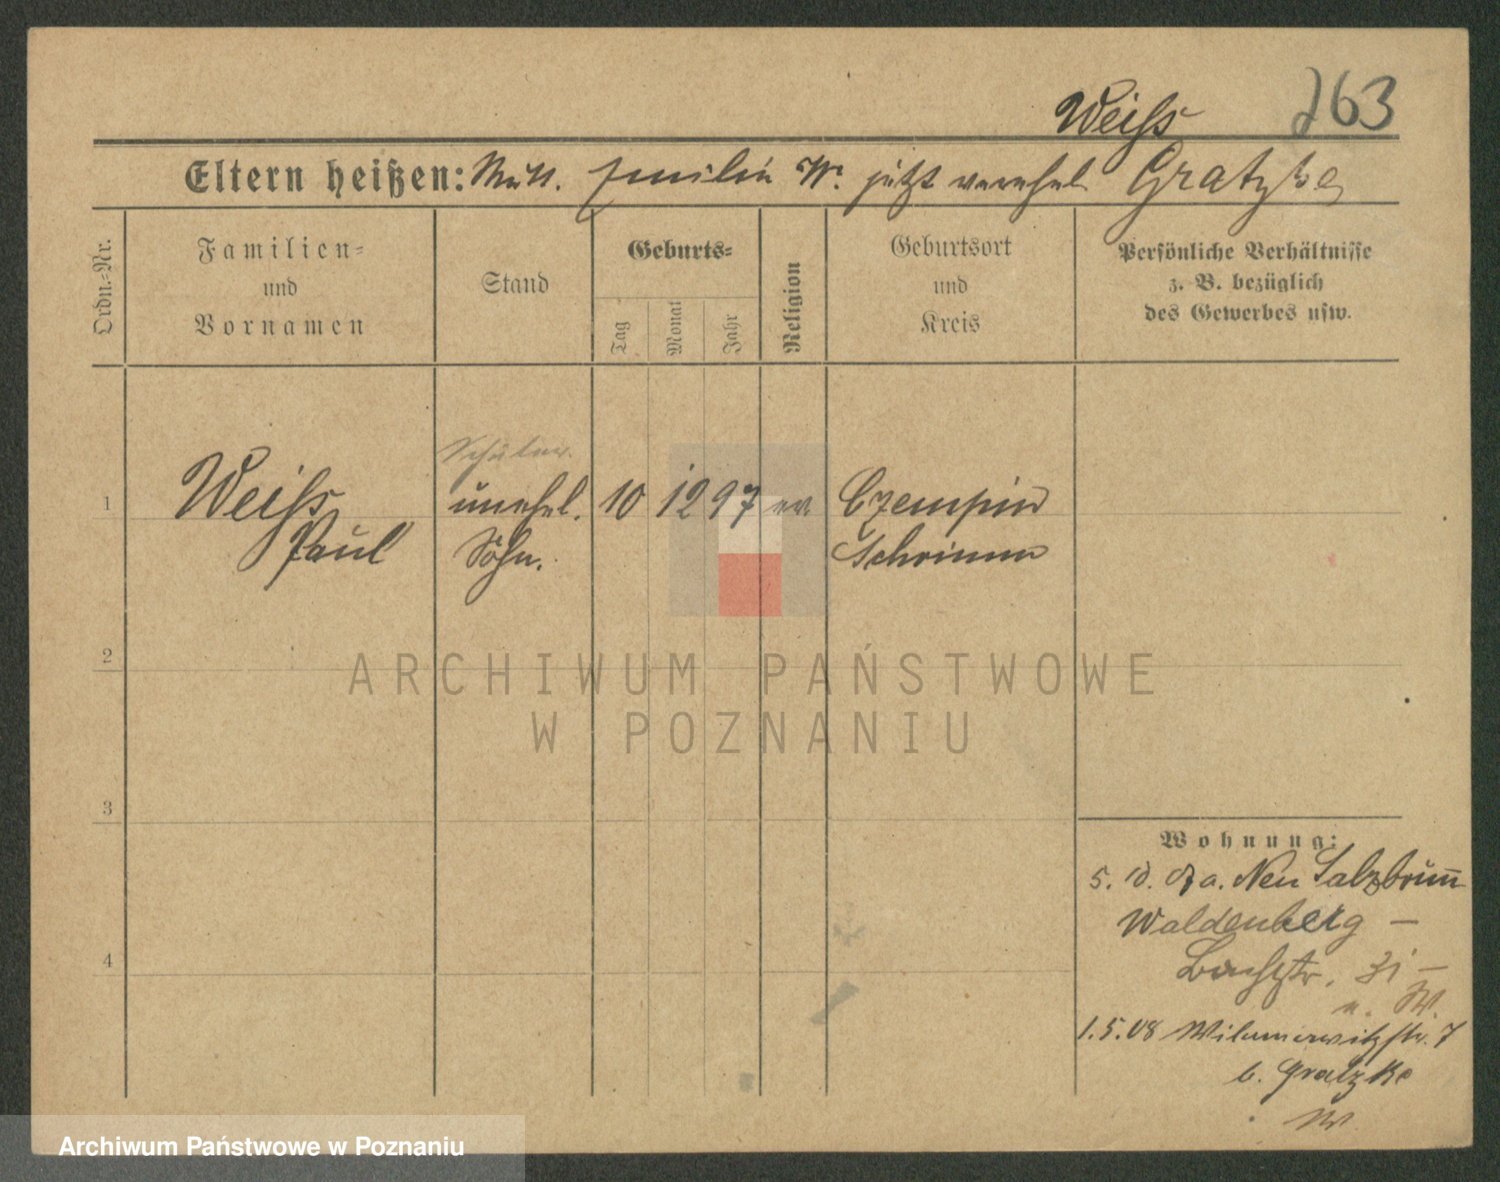 Weiss
263
Eltern heißen: Mutt. Emilie W. jetzt verehel. Gratzke
Ordn.-Nr.
Familien-
und
Vornamen
Stand
Geburts-
Tag
Monat
Jahr
Religion
Geburtsort
und
Kreis
Persönliche Verhältnisse
z. B. bezüglich
des Gewerbes usw.
Schüler
1 Weiss unehel. 10 12 97 ev Czempin
Paul Sohn. Schrimm
ARCHIWUM PAŃSTWOWE
W POZNANIU
2
3
4
Wohnung:
a. Neu Salzbrunn
Waldenberg –
1.5.08 Wilamowitzstr. 7
b. Gratzke
W.
Archiwum Państwowe w Poznaniu